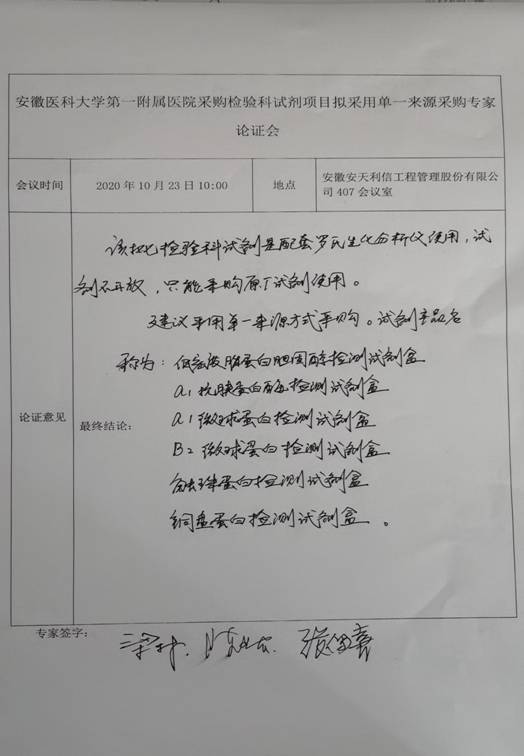 安徽医科大学第一附属医院采购检验科试剂项目拟采用单一来源采购专家
论证会
会议时间
2020 年 10 月 23 日 10:00
地点
安徽安天利信工程管理股份有限公
司 407 会议室
该批检验科试剂是配套罗氏生化分析仪使用，试
剂不开放，只能采购原厂试剂使用。
建议采用单一来源方式采购。试剂产品名
称为：低密度脂蛋白胆固醇检测试剂盒
α1抗胰蛋白酶检测试剂盒
α1微球蛋白检测试剂盒
论证意见
最终结论：
β2微球蛋白检测试剂盒
触珠蛋白检测试剂盒
铜蓝蛋白检测试剂盒。
专家签字：